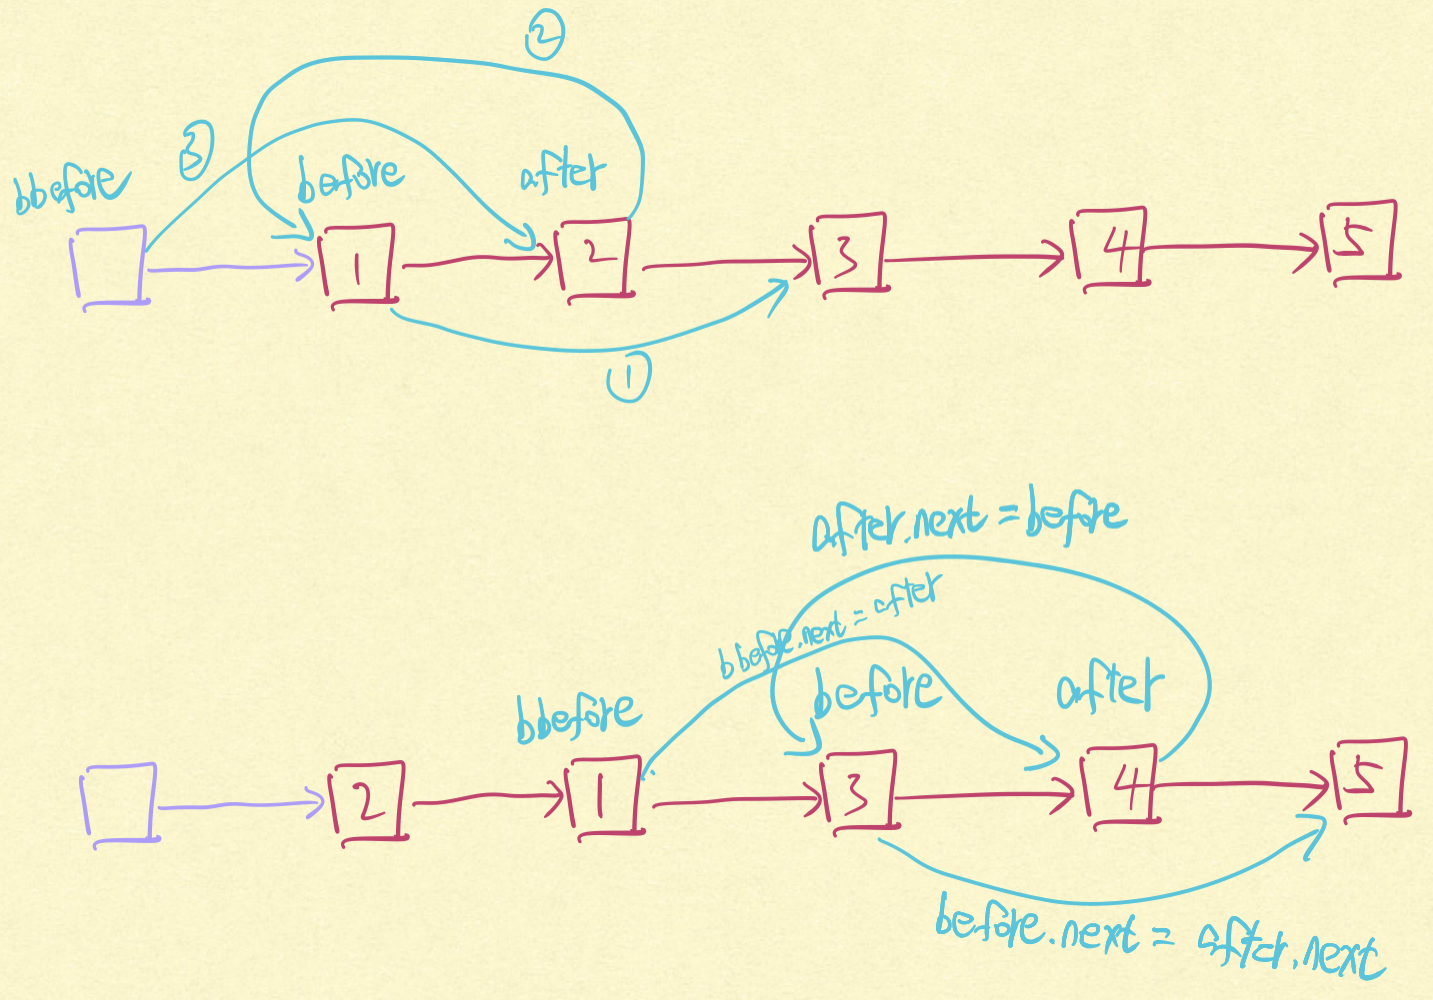 ②
③
bbefore
before
after
1
2
3
4
5
①
after.next = before
bbefore.next = after
bbefore
before
after
2
1
3
4
5
before.next = after.next